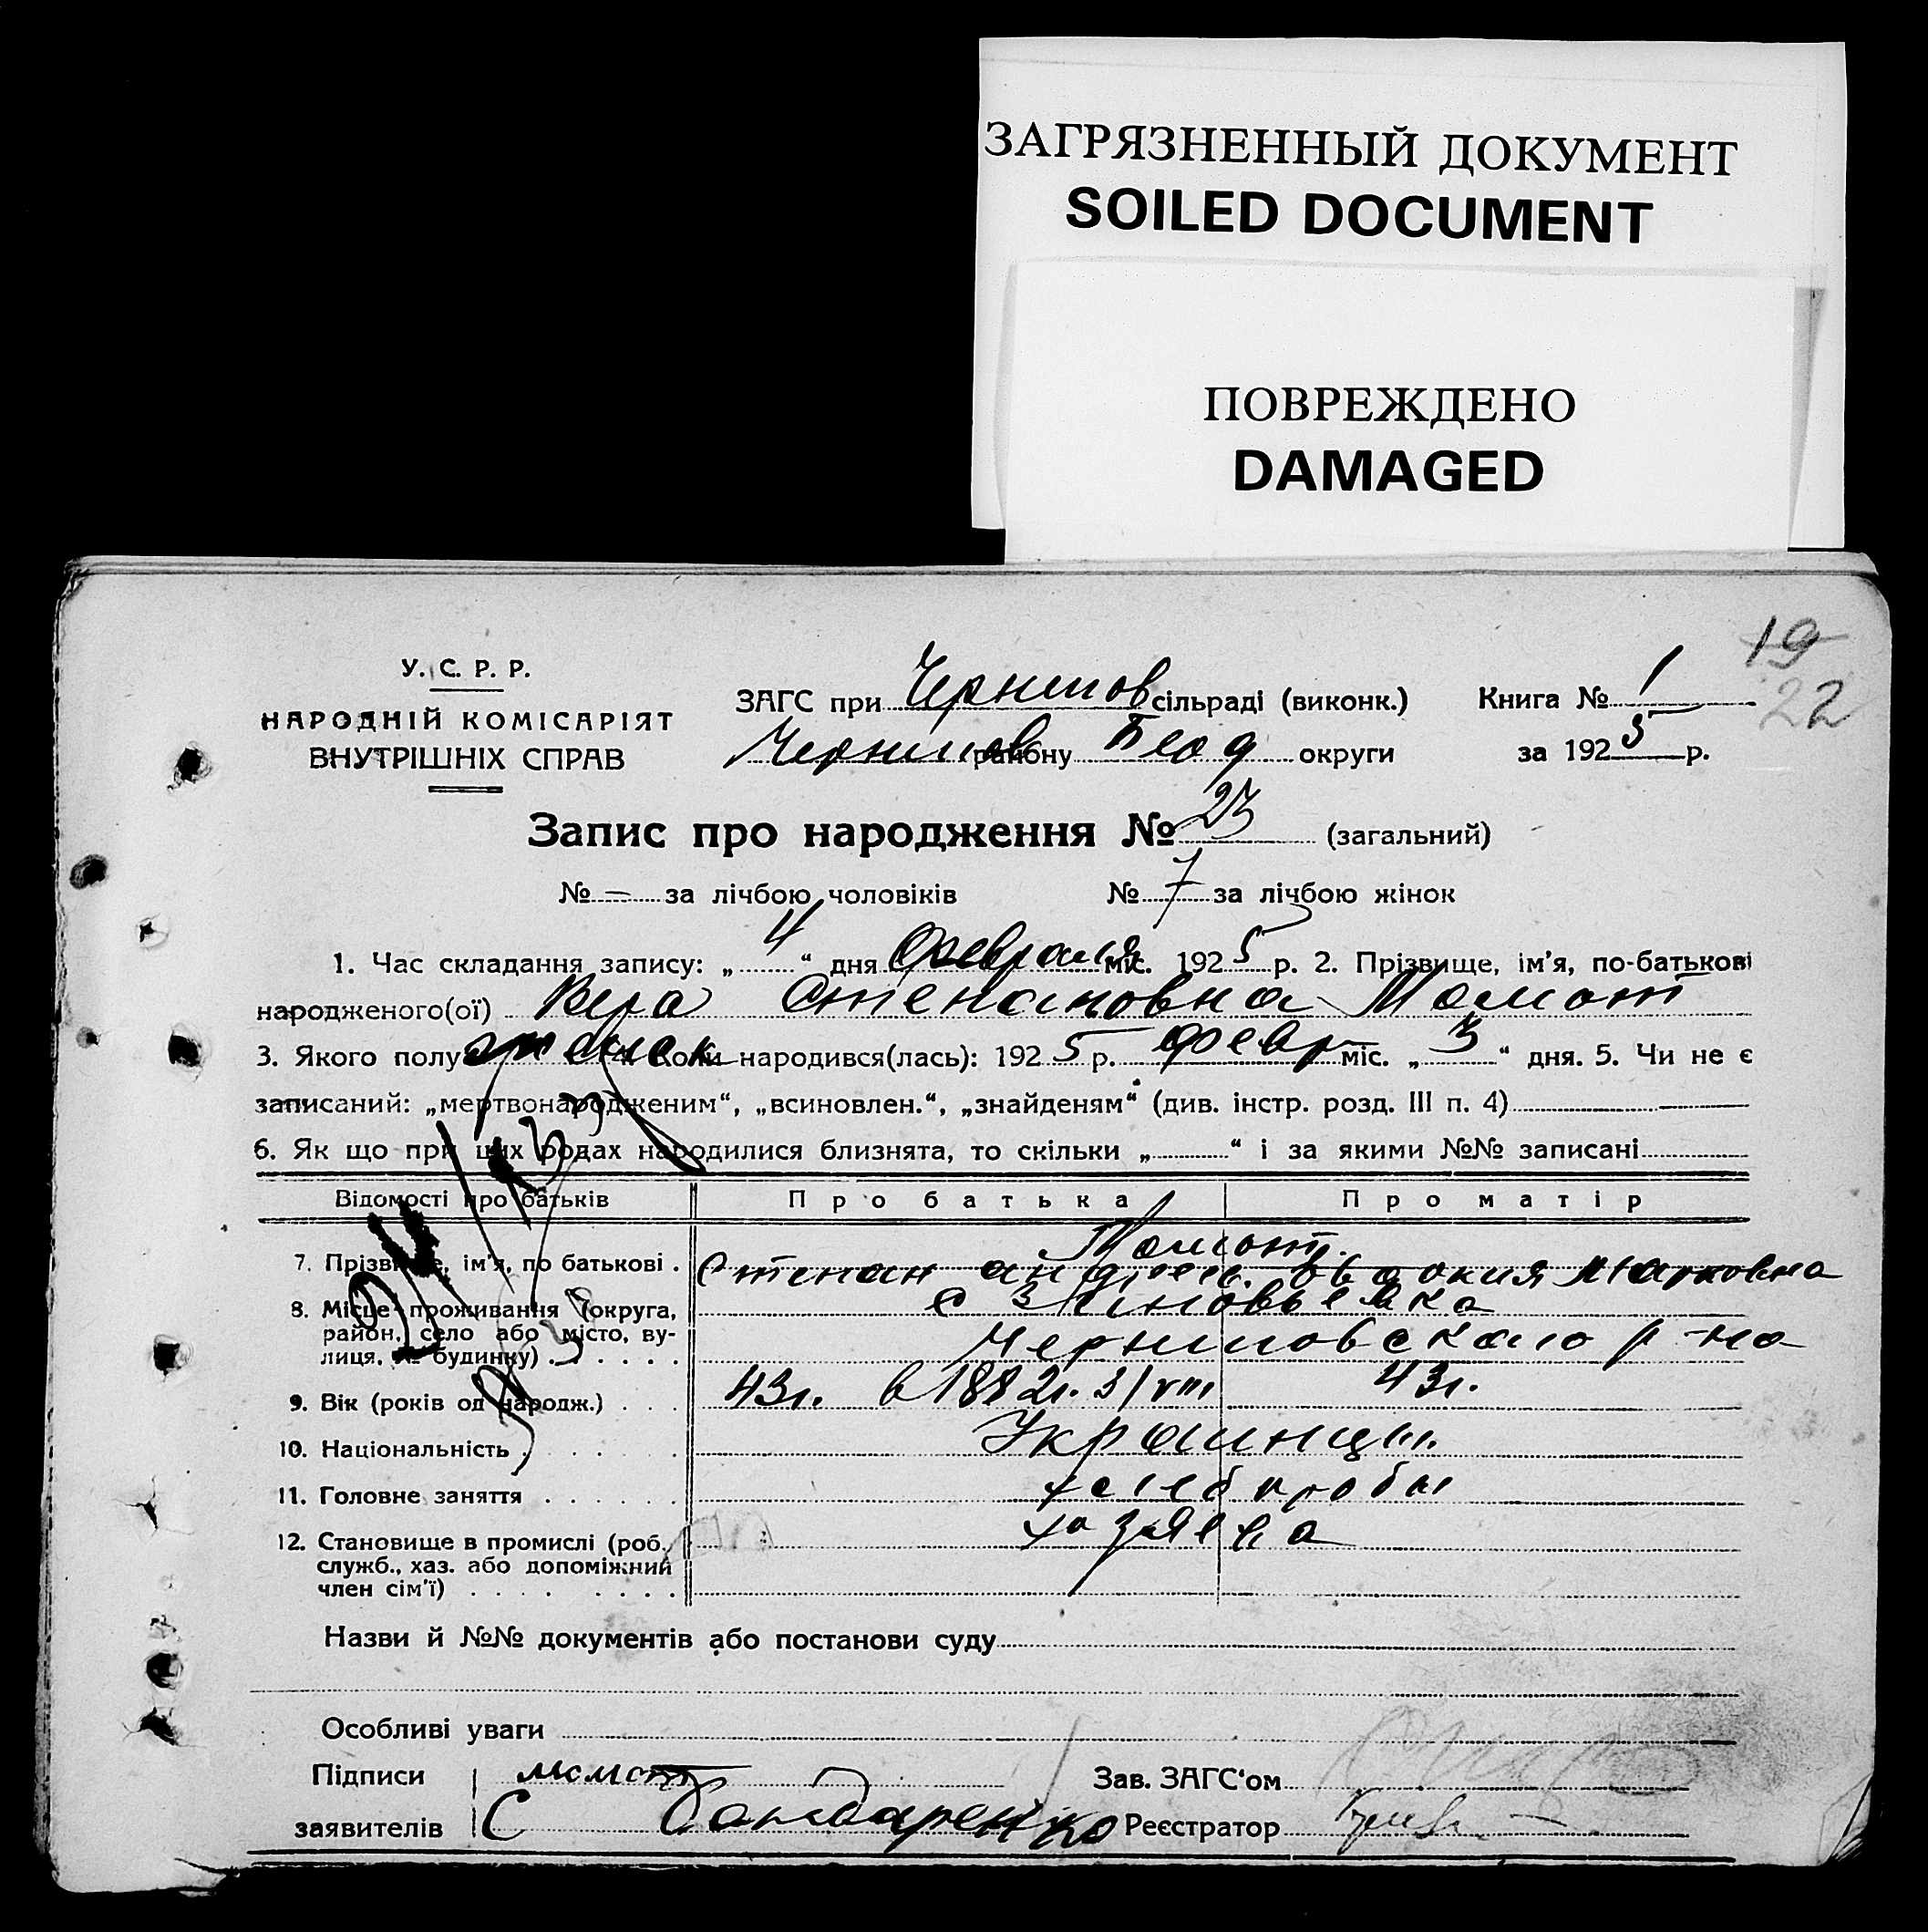 ЗАГРЯЗНЕННЫЙ ДОКУМЕНТ
SOILED DOCUMENT
ПОВРЕЖДЕНО
DAMAGED
19
22
У. С. Р. Р.
НАРОДНІЙ КОМІСАРІЯТ
ВНУТРІШНІХ СПРАВ
ЗАГС при Чернигов сільраді (виконк.) Книга № 1
району округи за 1925 р.
Запис про народження № 23 (загальний)
№ — за лічбою чоловіків № 7 за лічбою жінок
1. Час складання запису: „4“ дня Февраля міс. 1925 р. 2. Прізвище, ім'я, по-батькові
народженого(ої) Вера Степановна Мамот
3. Якого полу женск 4. Коли народився(лась): 1925 р. Февр міс. „3“ дня. 5. Чи не є
записаний: „мертвонародженим“, „всиновлен.“, „знайденям“ (див. інстр. розд. III п. 4)
6. Як що при цих родах народилися близнята, то скільки „ “ і за якими №№ записані
Відомості про батьків Про батька Про матір
Мамот.
7. Прізвище, ім'я, по батькові . Степан Андреев. Овдокия Марковна
8. Місце проживання (округа, с Зиновьевка
район, село або місто, ву-
лиця, № будинку) Черниговского р-на
9. Вік (років од народж.) . . . 43г. в 1882г. 3/VIII 43г.
10. Національність . Украинцы.
11. Головне заняття хлеборобы
12. Становище в промислі (роб. хозяева
служб., хаз. або допоміжний
член сім'ї)
Назви й №№ документів або постанови суду
Особливі уваги
Підписи мамот Зав. ЗАГС'ом
заявителів С Бандаренко Реєстратор